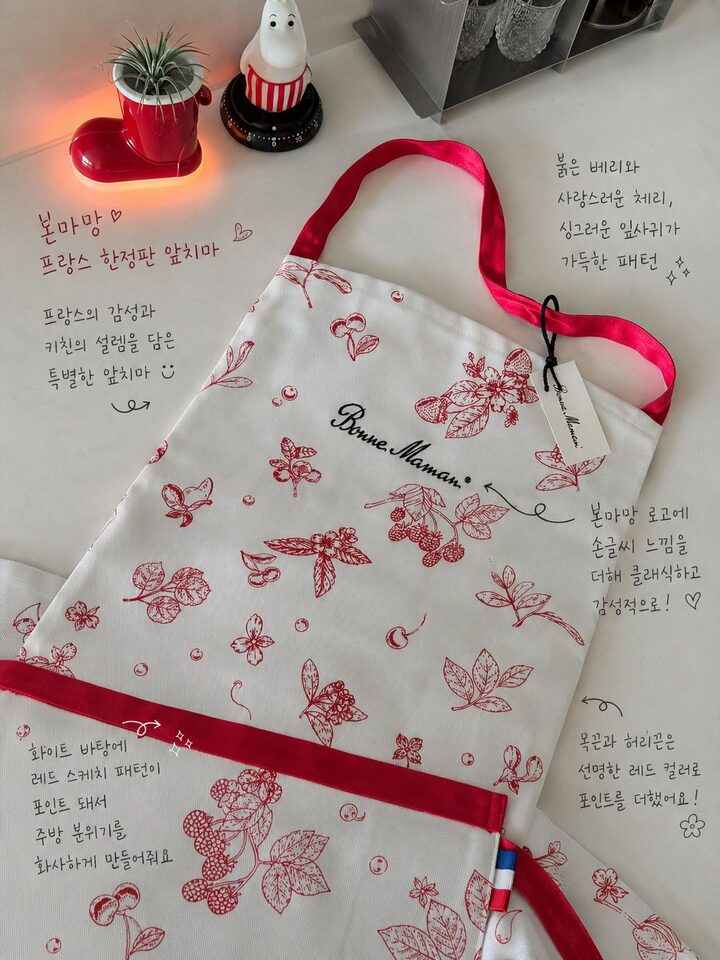 본마망 ♡
프랑스 한정판 앞치마
프랑스의 감성과
키친의 설렘을 담은
특별한 앞치마
붉은 베리와
사랑스러운 체리,
싱그러운 잎사귀가
가득한 패턴
Bonne Maman®
Bonne Maman
본마망 로고에
손글씨 느낌을
더해 클래식하고
감성적으로! ♡
목끈과 허리끈은
선명한 레드 컬러로
포인트를 더했어요!
화이트 바탕에
레드 스케치 패턴이
포인트 돼서
주방 분위기를
화사하게 만들어줘요